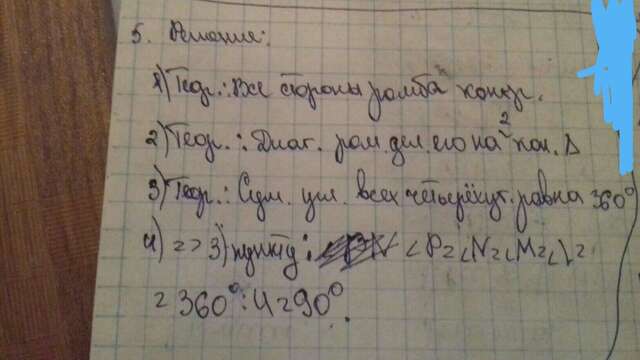 5. Решение:
1) Теор.: Все стороны ромба конгр.
2) Теор.: Диаг. ром. дел. его на 2 кон. Δ
3) Теор.: Сум. угл. всех четырёхуг. равна 360°
4) => 3) пункту: <P=<N=<M=<L=
= 360° : 4 = 90°.